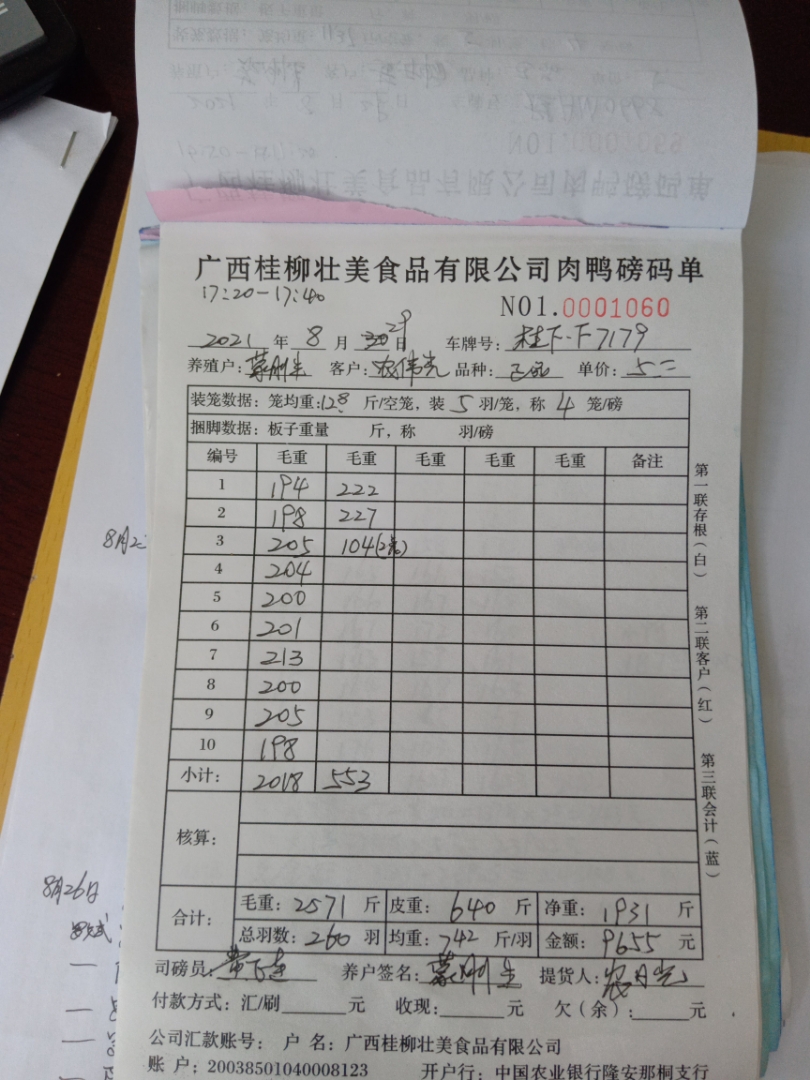 广西桂柳壮美食品有限公司肉鸭磅码单
17:20-17:40
NO1.0001060
2021 年 8 月 29 日 车牌号: 桂F·F7179
养殖户: 客户: 农伟光 品种: 单价: 5
装笼数据: 笼均重:12.8 斤/空笼, 装 5 羽/笼, 称 4 笼/磅
捆脚数据: 板子重量 斤, 称 羽/磅
编号 毛重 毛重 毛重 毛重 毛重 备注
1 194 222
2 198 227
3 205 104(2笼)
4 204
5 200
6 201
7 213
8 200
9 205
10 198
小计: 2018 553
核算:
合计: 毛重: 2571 斤 皮重: 640 斤 净重: 1931 斤
总羽数: 260 羽 均重: 742 斤/羽 金额: 9655 元
司磅员: 养户签名: 提货人:
付款方式: 汇/刷 元 收现: 元 欠(余): 元
公司汇款账号: 户 名: 广西桂柳壮美食品有限公司
账 户: 20038501040008123 开户行: 中国农业银行隆安那桐支行
第一联存根(白) 第二联客户(红) 第三联会计(蓝)
8月26日